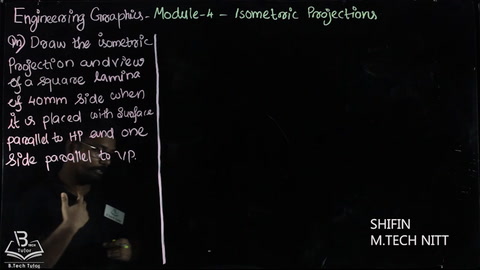 Engineering Graphics - Module-4 - Isometric Projections
Qn) Draw the isometric
projection and view
of a square lamina
of 40mm side when
it is placed with surface
parallel to HP and one
side parallel to VP.
SHIFIN
M.TECH NITT
B.Tech
Tutor
B.Tech Tutor